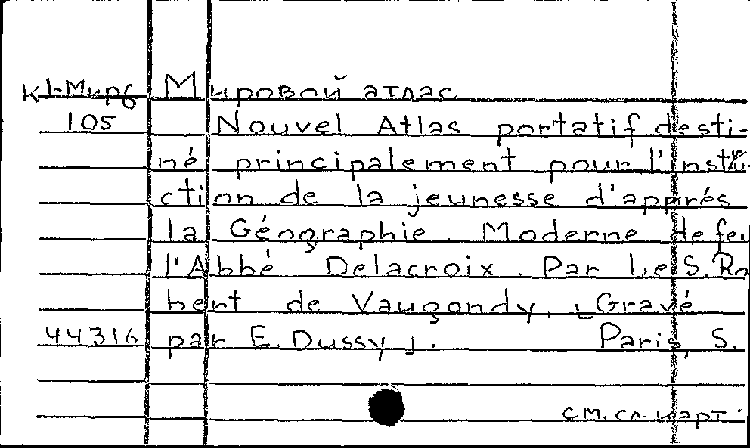 К1-Мир6 Мировой атлас
105 Nouvel Atlas portatif desti-
né principalement pour l'instru-
ction de la jeunesse d'apprés
la Géographie Moderne de feu
l'Abbé Delacroix. Par Le S. Ro
bert de Vaugondy. [Gravé
44316 par E. Dussy]. Paris, S.
см. сл. карт.